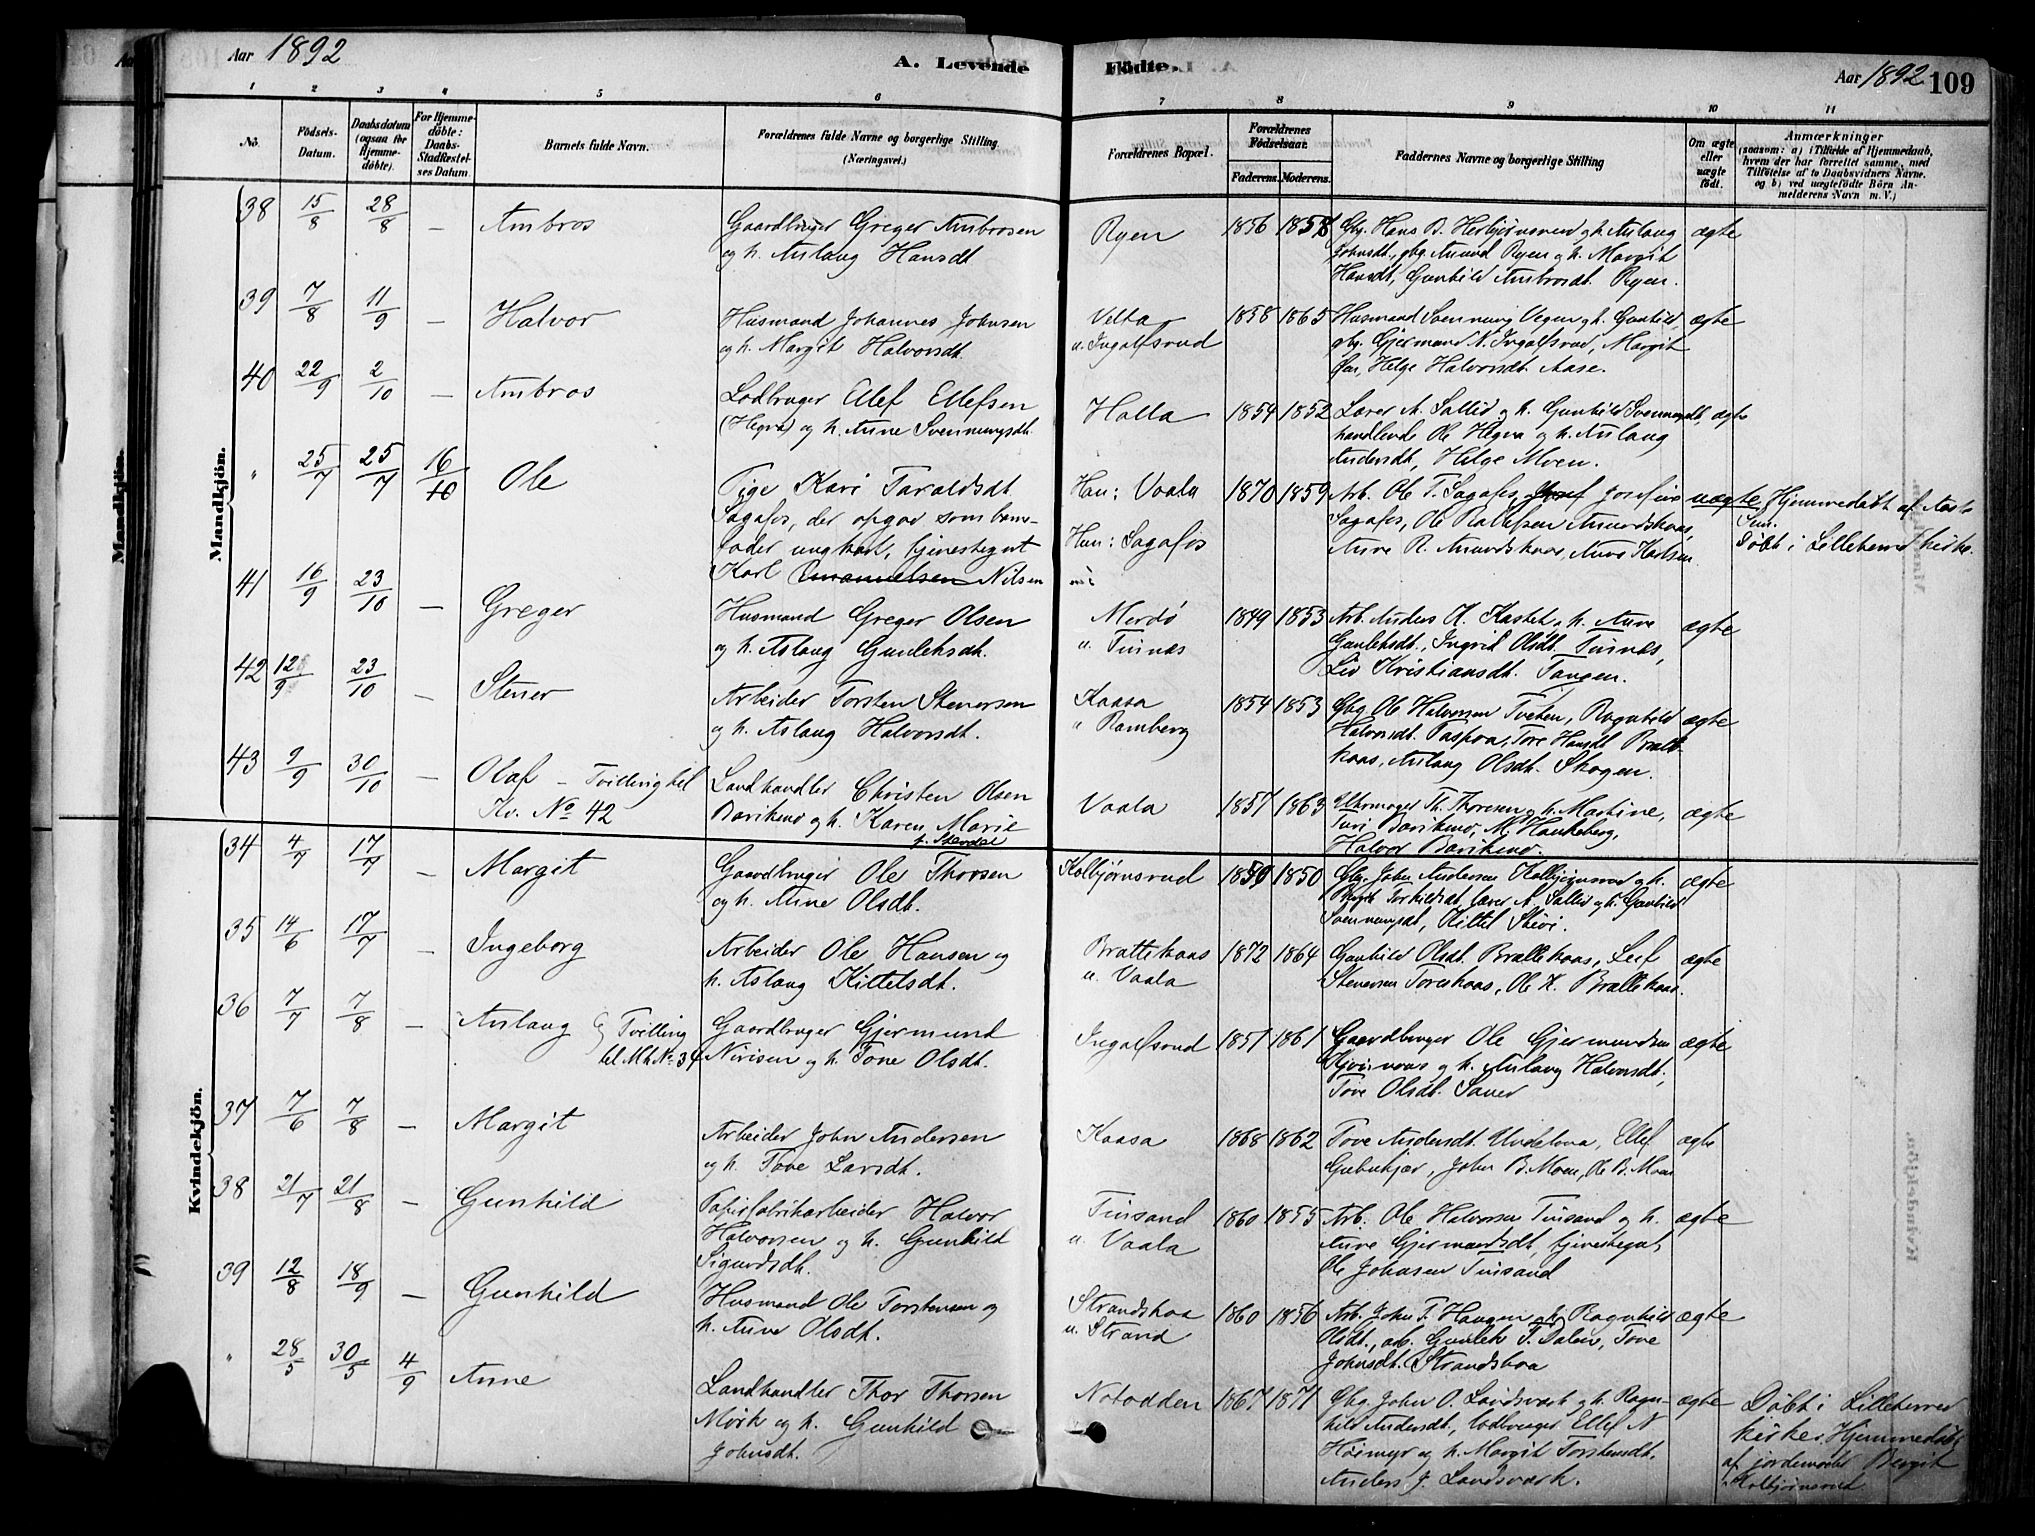 Aar 1892
A. Levende Födte.
Aar 1892 109
1 2 3 4 5 6 7 8 9 10 11
No.
Födsels-Datum.
Daabsdatum (ogsaa for Hjemmedöbte).
For Hjemmedöbte: Daabs-Stadfæstelses Datum.
Barnets fulde Navn.
Forældrenes fulde Navne og borgerlige Stilling (Næringsvei.)
Forældrenes Bopæl.
Forældrenes Födselsaar.
Faderens. Moderens.
Faddernes Navne og borgerlige Stilling
Om ægte eller uægte födt.
Anmærkninger
(saasom: a) i Tilfælde af Hjemmedaab,
hvem der har forrettet samme, med
Tilföielse af to Daabsvidners Navne.
og b) ved uægtefödte Börn An-
melderens Navn m. V.)
Mandkjön.
38 15/8 28/8 – Ambros
Gaardbruger Greger Ambrosen
og h. Aslaug Hansdt.
Ryen 1856 1857
Gbg. Hans B. Herbjørnsrud og h. Aslaug
Johnsdt., gbg. Amund Ryen og h. Margit
Hansdt, Gunhild Ambrosdt. Ryen.
ægte
39 7/8 11/9 – Halvor
Husmand Johannes Johnsen
og h. Margit Halvorsdt.
Velta
u. Ingolfsrud
1858 1865
Husmand Svennung Øygen og h. Gunhild,
gbg. Gjermund N. Ingolfsrud, Margit
Helge Halvorsdt. Aase.
ægte
40 22/9 2/10 – Ambros
Lodbruger Ellef Ellefsen
(Hegna) og h. Anne Svennungsdt.
Holla 1854 1852
Lærer A. Sallid og h. Gunhild Svennungsdt,
handlende Ole Hegna og h. Aslaug
Andersdt, Helge Moen.
ægte
" 25/7 25/7 16/10 Ole
Pige Kari Taraldsdt.
Sagafos, der opgav som barne-
fader ungkarl, tjenestegut
Karl Emanuelsen Nilsen
Han: Vaala
Hun: Sagafos
1870 1859
Arb. Ole T. Sagafos, Josef Josefine
Sagafos, Ole Rollefsen Amundskaas,
Anne R. Amundskaas, Anne Karlsen
uægte
Hjemmedøbt af
Døbt i Lilleherred kirke.
41 16/9 23/10 – Greger
Husmand Greger Olsen
og h. Aslaug Gunleiksdt.
Merdø
u. Tinnæs
1849 1853
Arb. Anders H. Kastet og h. Anne
Gunleiksdt., Ingrid Olsdt. Tinnæs,
Liv Kristiansdt. Tangen.
ægte
42 12/9 23/10 – Stener
Arbeider Torsten Stenersen
og h. Aslaug Halvorsdt.
Kaasa
u Ramberg
1854 1853
Gbg Ole Halvorsen Tveten, Ragnhild
Halvorsdt. Tore Hansdt Bratte-
kaas, Aslaug Olsdt. Skogen.
ægte
43 9/9 30/10 – Olaf – Tvilling til
Kv. No 42
Landhandler Christen Olsen
Bavikeno og h. Karen Marie
Vaala 1857 1863
Uhrmager Th. Thoresen og h. Martine,
Turi M. Haukeberg,
Halvor
ægte
Kvindekjön.
34 4/7 17/7 – Margit
Gaardbruger Ole Thorsen
og h. Anne Olsdt.
Kolbjørnsrud 1859 1850
Gbg. John Andersen Kolbjørnsrud og h.
Bergit Torkildsdt., lærer A. Sallid og h. Gunhild
Svennungsdt, Kittel Støvi.
ægte
35 14/6 17/7 – Ingeborg
Arbeider Ole Hansen og
h. Aslaug Kittelsdt.
Brattekaas
u. Vaala
1872 1864
Gunhild Olsdt. Brattekaas, Leif
Stenersen Toreskaas, Ole K. Brattekaas.
ægte
36 7/7 7/8 – Aslaug Tvilling
til Mk No. 34
Gaardbruger Gjermund
Nirisen og h. Tone Olsdt.
Ingolfsrud 1851 1861
Gaardbruger Ole Gjermundsen
og h. Aslaug Halvorsdt.,
Tove Olsdt. Sauer
ægte
37 7/6 7/8 – Margit
Arbeider John Andersen
og h. Tove Larsdt.
Kaasa 1868 1862
Tove Andersdt. Ellef
John B. Moen, Ole B. Moen
ægte
38 21/7 21/8 – Gunhild
Papirfabrikarbeider Halvor
Halvorsen og h. Gunhild
Sigurdsdt.
Tinsand
u. Vaala
1860 1855
Arb. Ole Halvorsen Tinsand og h.
Anne Gjermundsdt, tjenestegut,
Ole Johnsen Tinsand
ægte
39 12/8 18/9 – Gunhild
Husmand Ole Torstensen og
h. Anne Olsdt.
Strandskaa
u. Strand
1860 1856
Arb. John T. Haugen og h. Ragnhild
Olsdt., arb. Gunleik T. Dalen, Tove
Johnsdt. Strandskaa
ægte
" 28/5 30/5 4/9 Anne
Landhandler Thor Thorsen
Mörk og h. Gunhild
Johnsdt.
Notodden 1867 1871
Gbg. John O. Landsværk og h. Ragn-
hild Andersdt, lodbruger Ellef N
Høimyr og h. Margit Torstensdt.
Anders J. Landsværk.
ægte
Døbt i Lilleherred
kirke. Hjemmedøbt
af jordemoder Bergit
Kolbjørnsrud